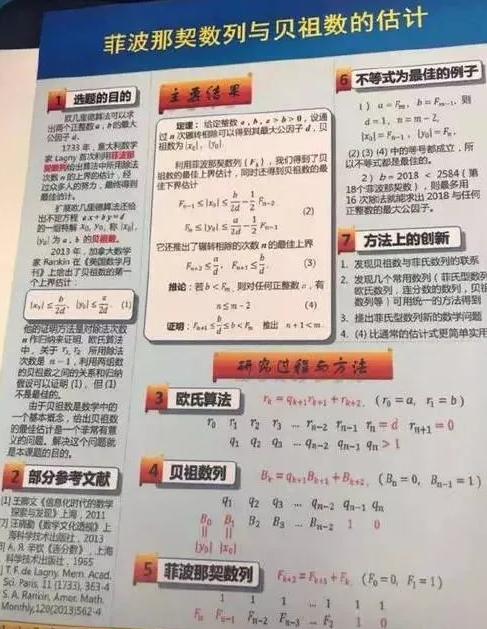 菲波那契数列与贝祖数的估计
1 选题的目的
欧几里德算法可以求
出两个正整数 a, b 的最大
公因子 d.
1733 年, 意大利数学
家 Lagny 首次利用菲波那
契数列给出算法中所用除法
次数 n 的上界的估计, 经
过众多人的努力, 最终得到
最佳估计。
扩展欧几里德算法还给
出不定方程 ax+by=d
的一组特解 x₀, y₀, 称 |x₀|,
|y₀| 为 a, b 的贝祖数。
2013 年, 加拿大数学
家 Rankin 在《美国数学月
刊》上给出了贝祖数的第一
个上界估计:
|x₀| ≤ b/2d, |y₀| ≤ a/2d. (1)
他的证明方法是对除法次数
n 作归纳来证明, 欧氏算法
中, 关于 r₁, r₂ 所用除法
次数是 n-1, 利用两组数
的贝祖数之间的关系和归纳
假设可以证明 (1), 但 (1)
不是最佳的。
由于贝祖数是数学中的
一个基本概念, 给出贝祖数
的最佳估计是一个非常有意
义的问题。解决这个问题就
是本课题的目的。
2 部分参考文献
[1] 王御文《信息化时代的数学
探索与发现》上海, 2011
汪晓勤《数学文化透视》上
海科学技术出版社, 2013
A. 辛钦《连分数》, 上海
科学技术出版社, 1965
T. F. de Lagny, Mem. Acad.
Sci. Paris, 11 (1733), 363-4
S. A. Rankin, Amer. Math.
Monthly, 120(2013)562-4
主要结果
定理: 给定整数 a, b, a > b > 0, 设通
过 n 次辗转相除可以得到其最大公因子 d, 贝
祖数为 |x₀|, |y₀|. 则
利用菲波那契数列 {Fₖ}, 我们得到了贝
祖数的最佳上界估计, 同时还得到贝祖数的最
佳下界估计
Fₙ₋₁ ≤ |x₀| ≤ b/2d − 1/2 Fₙ₋₂
(2)
Fₙ ≤ |y₀| ≤ a/2d − 1/2 Fₙ₋₁
它还推出了辗转相除的次数 n 的最佳上界
Fₙ₊₂ ≤ a/d, Fₙ₊₁ ≤ b/d. (3)
推论: 若 b < Fₘ, 则对任何正整数 a, 有
n ≤ m − 2 (4)
证明: Fₙ₊₁ ≤ b/d ≤ b < Fₘ 推出 n + 1 < m.
6 不等式为最佳的例子
1) a = Fₘ, b = Fₘ₋₁, 则
d = 1, n = m − 2,
|x₀| = Fₙ₋₁, |y₀| = Fₙ.
(2) (3) (4) 中的等号都成立, 所
以不等式都是最佳的。
2) b = 2018 < 2584 (第
18个菲波那契数), 则最多用
16 次除法就能求出 2018 与任何
正整数的最大公因子。
7 方法上的创新
1. 发现贝祖数与菲氏数列的联系
2. 发现几个常用数列 (菲氏型数列
欧氏数列, 连分数的数列, 贝祖
数列等) 可用统一的方法得到
3. 提出菲氏型数列新的数学问题
4. (4) 比通常的估计式更简单实用
研究过程与方法
3 欧氏算法 rₖ = qₖ₊₁rₖ₊₁ + rₖ₊₂, (r₀ = a, r₁ = b)
r₀ r₁ r₂ r₃ … rₙ₋₂ rₙ₋₁ rₙ = d rₙ₊₁ = 0
q₁ q₂ q₃ … qₙ₋₂ qₙ₋₁ qₙ > 1
4 贝祖数列 Bₖ = qₖ₊₁Bₖ₊₁ + Bₖ₊₂, (Bₙ = 0, Bₙ₋₁ = 1)
q₁ q₂ q₃ … qₙ₋₂ qₙ₋₁ qₙ
B₀ B₁ B₂ B₃ … Bₙ₋₂ 1 0
|| ||
|y₀| |x₀|
5 菲波那契数列 Fₖ₊₂ = Fₖ₊₁ + Fₖ, (F₀ = 0, F₁ = 1)
1 1 1 … 1 1 1
Fₙ Fₙ₋₁ Fₙ₋₂ Fₙ₋₃ … F₂ 1 0